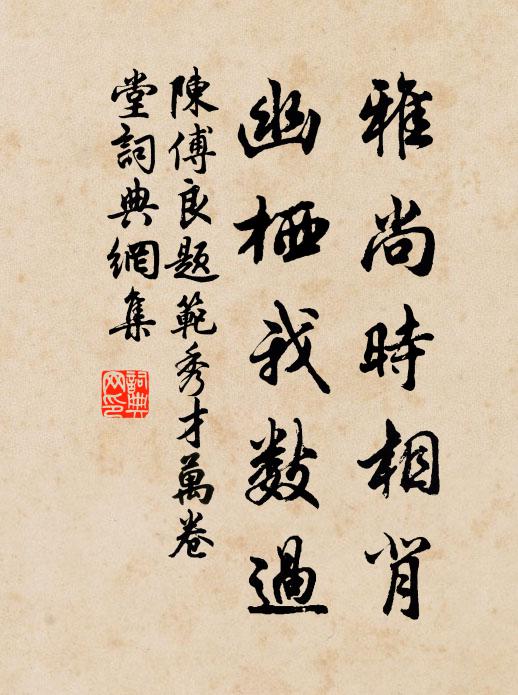 雅尚時相背
幽栖我數過
陳傅良題範秀才萬卷
堂詞典網集
詞典網印